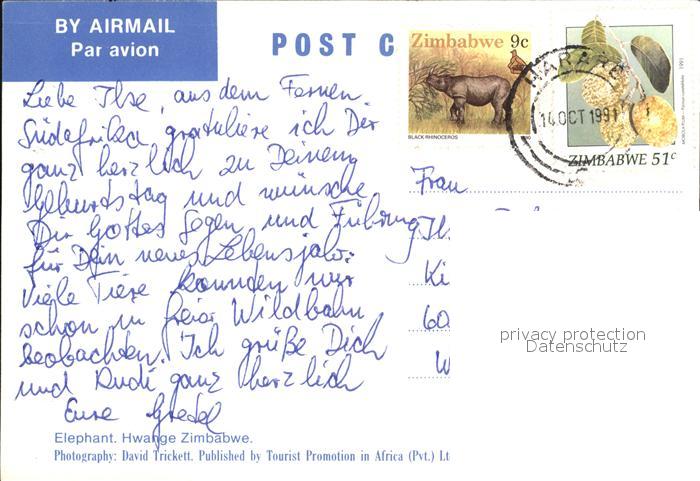 BY AIRMAIL
Par avion
POST C
Zimbabwe 9c
BLACK RHINOCEROS
HARARE
14 OCT 1991
1991
ZIMBABWE 51c
Liebe Ilse, aus dem Fernen
Südafrika gratuliere ich Dir
ganz herzlich zu Deinem
Geburtstag und wünsche
Dir Gottes Segen und Führung
für Dein neues Lebensjahr.
Viele Tiere konnten wir
schon in freier Wildbahn
beobachten. Ich grüße Dich
und Rudi ganz herzlich
Eure Gretel
Frau
Ki
60
W
privacy protection
Datenschutz
Elephant. Hwange Zimbabwe.
Photography: David Trickett. Published by Tourist Promotion in Africa (Pvt.) Lt